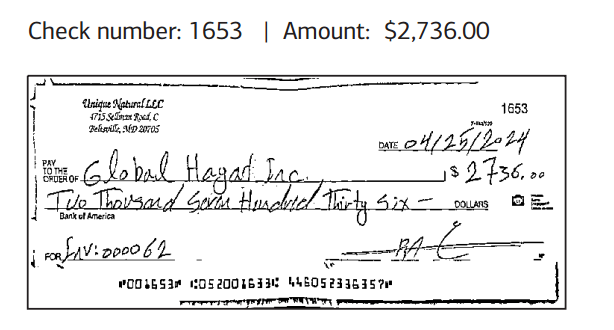 Check number: 1653 | Amount: $2,736.00
Unique Natural LLC
4715 Sellman Road, C
Beltsville, MD 20705
1653
DATE 04/25/2024
PAY
TO THE
ORDER OF Global Hagat Inc.
$ 2736.00
Two Thousand Seven Hundred Thirty Six — DOLLARS
Bank of America
FOR INV: 000062
⑈001653⑈ ⑆052001633⑆ 446052336357⑈